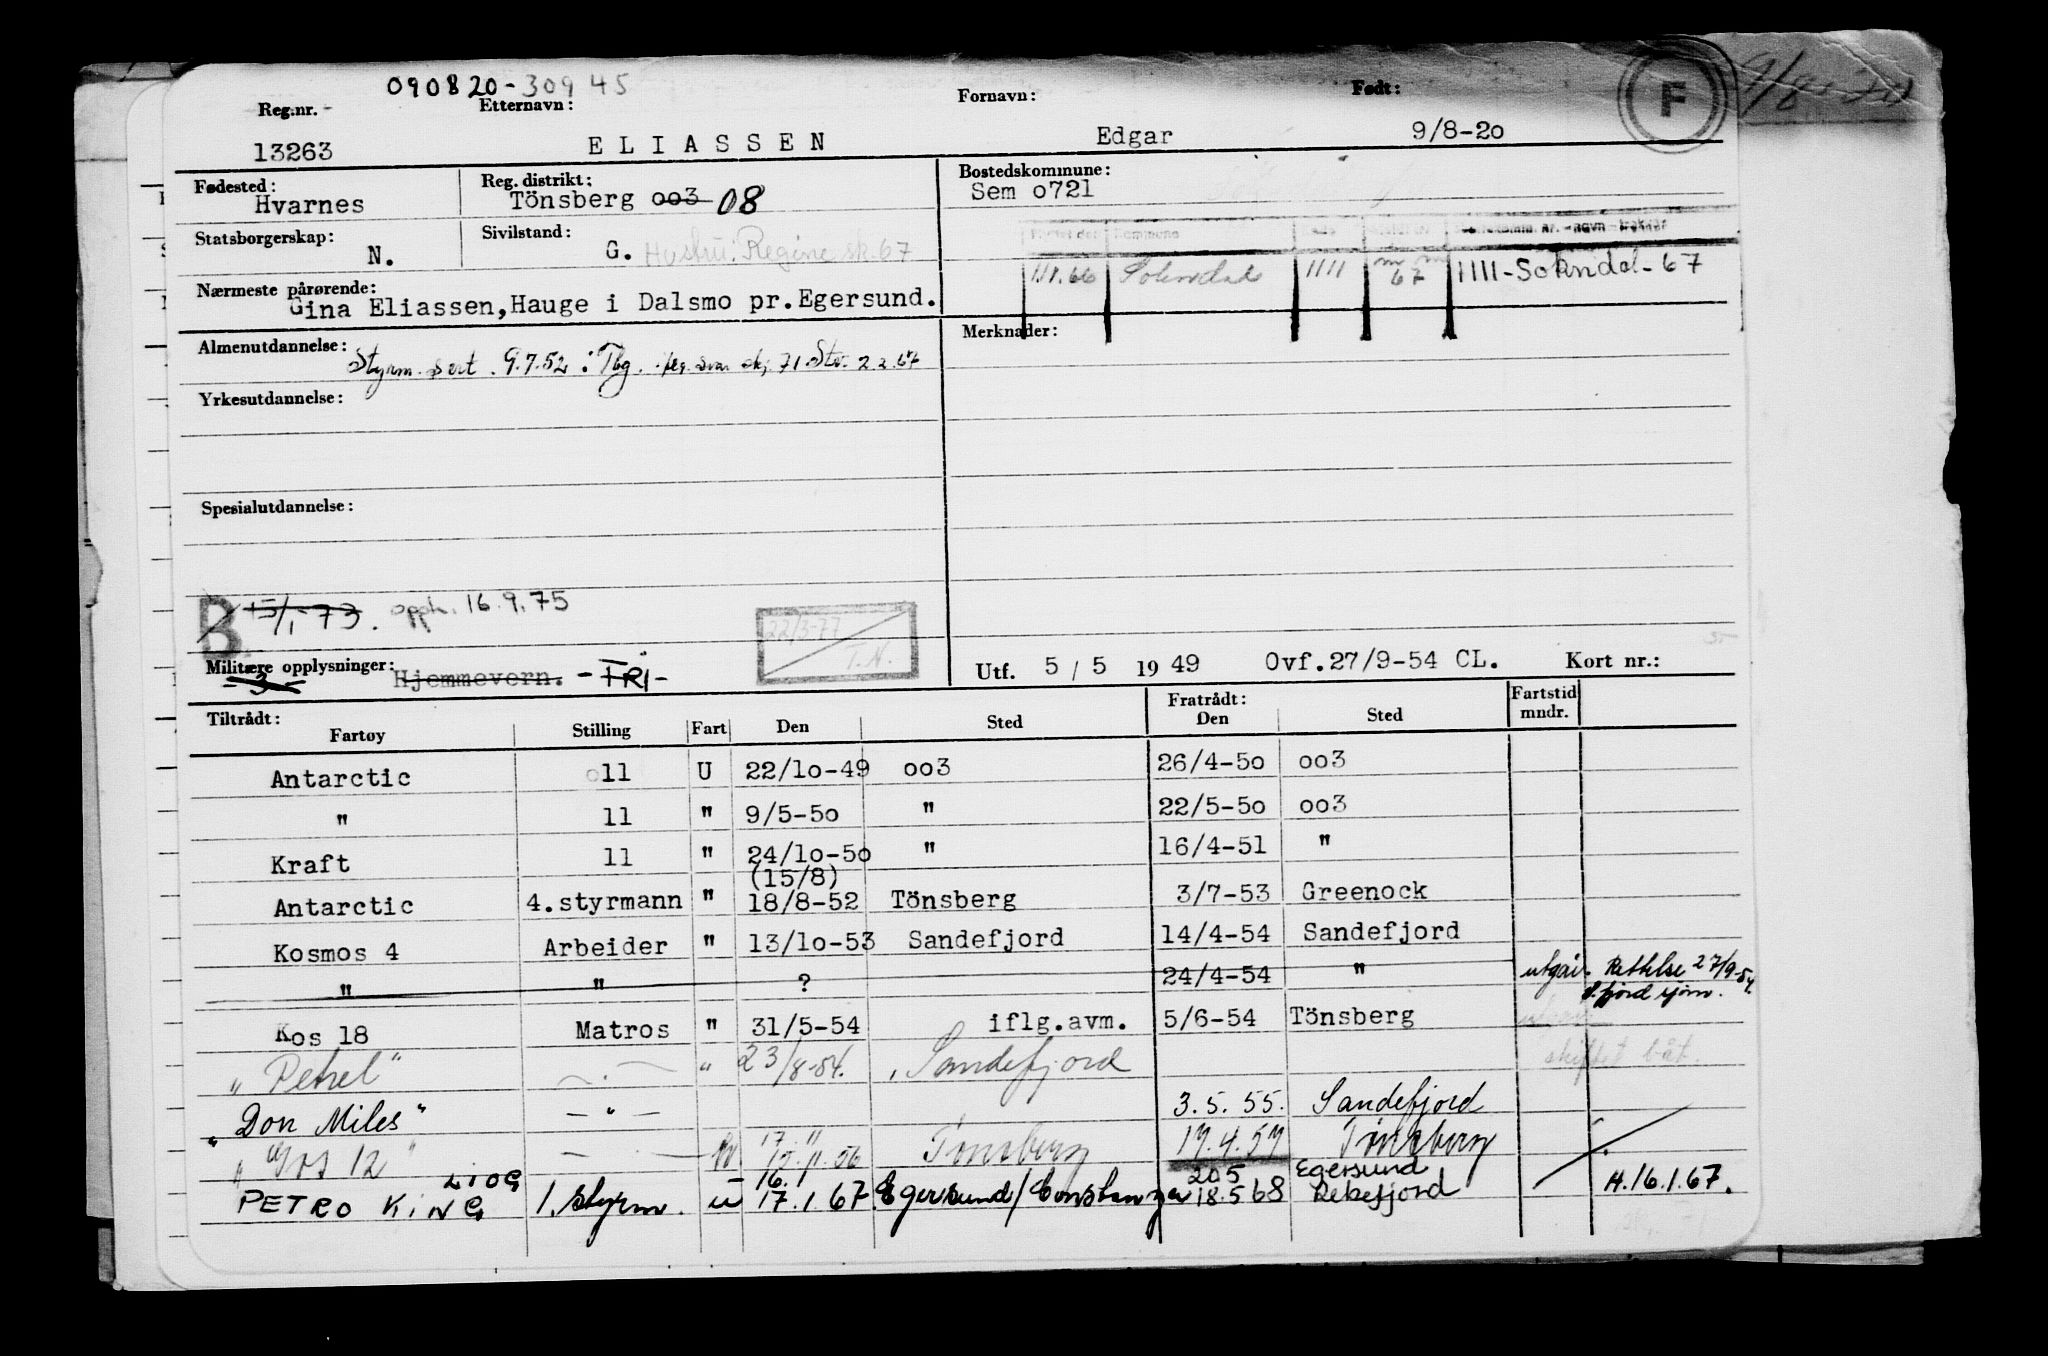 090820-30945
Reg.nr. Etternavn: Fornavn: Født:
13263 ELIASSEN Edgar 9/8-2o F
Fødested: Reg. distrikt: Bostedskommune:
Hvarnes Tönsberg oo3 08 Sem o721
Statsborgerskap: Sivilstand:
N. G. Hustru: Regine sk. 67
1111 67 1111-Sokndal-67
Nærmeste pårørende:
Gina Eliassen,Hauge i Dalsmo pr.Egersund.
Almenutdannelse: Merknader:
Styrm. sert. 9.7.52 i Tbg.
Yrkesutdannelse:
Spesialutdannelse:
B 15/1-73. opph. 16.9.75
22/3-77
T.N.
Militære opplysninger: Utf. 5/5 1949 Ovf.27/9-54 CL. Kort nr.:
-3- Hjemmevern. -FRI-
Tiltrådt: Fratrådt: Fartstid
Fartøy Stilling Fart Den Sted Den Sted mndr.
Antarctic o11 U 22/1o-49 oo3 26/4-5o oo3
" 11 " 9/5-5o " 22/5-5o oo3
Kraft 11 " 24/1o-5o " 16/4-51 "
(15/8)
Antarctic 4.styrmann " 18/8-52 Tönsberg 3/7-53 Greenock
Kosmos 4 Arbeider " 13/1o-53 Sandefjord 14/4-54 Sandefjord
" " ? 24/4-54 " utgår. Rettelse 27/9-54.
S.fjord sjøm.
Kos 18 Matros " 31/5-54 iflg.avm. 5/6-54 Tönsberg
skiftet båt.
"Petrel" - " - " 23/8-54. Sandefjord
"Don Miles" - " - 3.5.55. Sandefjord
"Gos 12" - " - 17/11.56 Tønsberg 17.4.57 Tønsberg
LIOG 16.1 20.5 Egersund
PETRO KING 1. styrm. u 17.1.67. Egersund/Constanza 18.5 68 Rekefjord H.16.1.67.